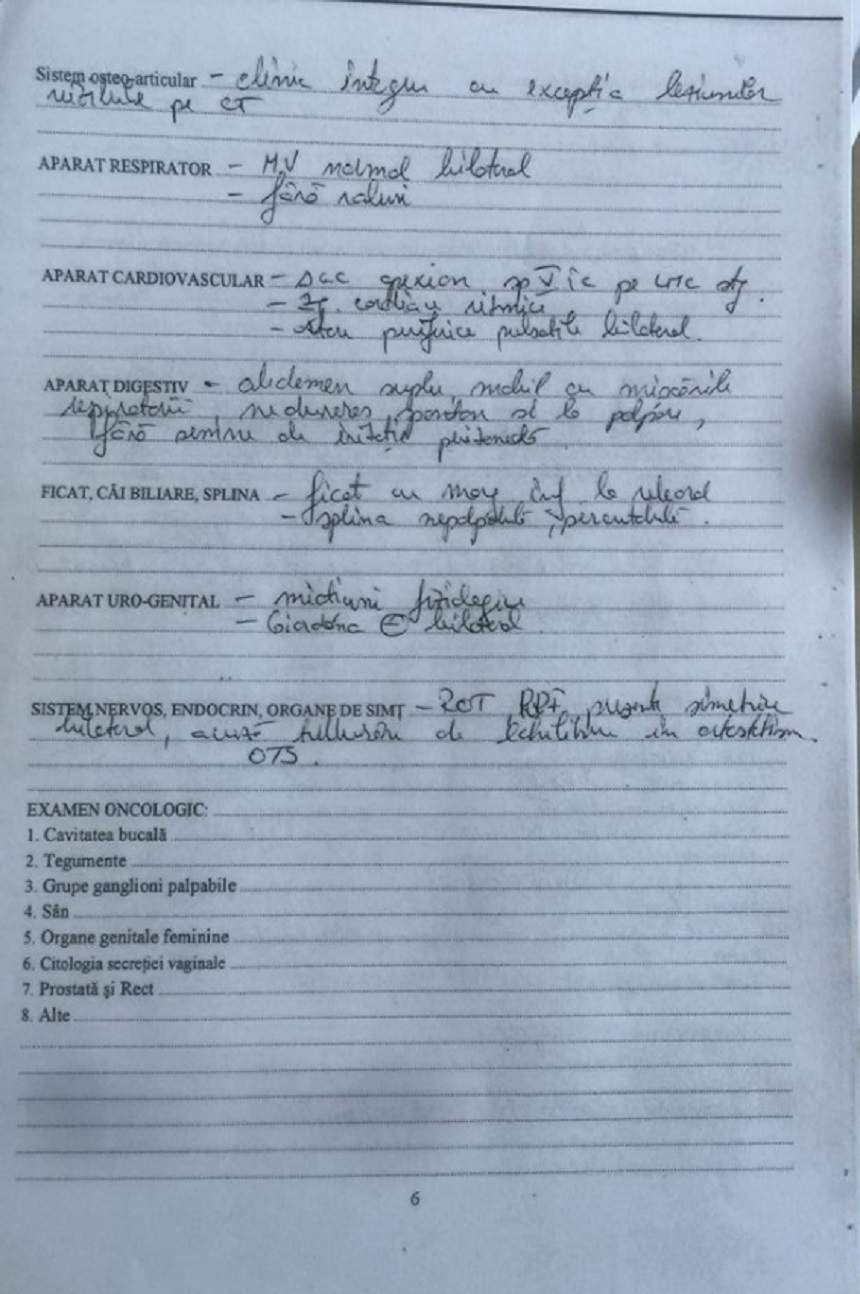 Sistem osteo-articular - clinic integru cu excepția leziunilor
vizibile pe CT
APARAT RESPIRATOR - M.V normal bilateral
- fără raluri
APARAT CARDIOVASCULAR - sp V ic pe LMC stg.
- Zg. cardiace ritmice
- periferice pulsatile bilateral.
APARAT DIGESTIV - abdomen suplu, mobil cu mișcările
respiratorii, nedureros spontan și la palpare,
fără semne de iritație peritoneală
FICAT, CĂI BILIARE, SPLINA - ficat cu marg inf la rebord
- splina nepalpabilă, percutabilă.
APARAT URO-GENITAL - micțiuni fiziologice
- Giordano ⊖ bilateral
SISTEM NERVOS, ENDOCRIN, ORGANE DE SIMȚ - ROT prezente simetrice
bilateral, acuză tulburări de echilibru în ortostatism.
OTS.
EXAMEN ONCOLOGIC:
1. Cavitatea bucală
2. Tegumente
3. Grupe ganglioni palpabile
4. Sân
5. Organe genitale feminine
6. Citologia secreției vaginale
7. Prostată și Rect
8. Alte
6